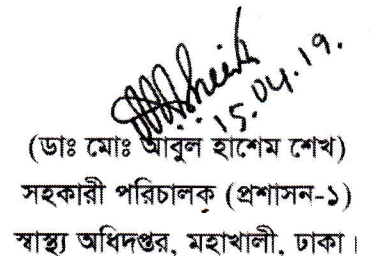 15.04.19.
(ডাঃ মোঃ আবুল হাশেম শেখ)
সহকারী পরিচালক (প্রশাসন-১)
স্বাস্থ্য অধিদপ্তর, মহাখালী, ঢাকা।